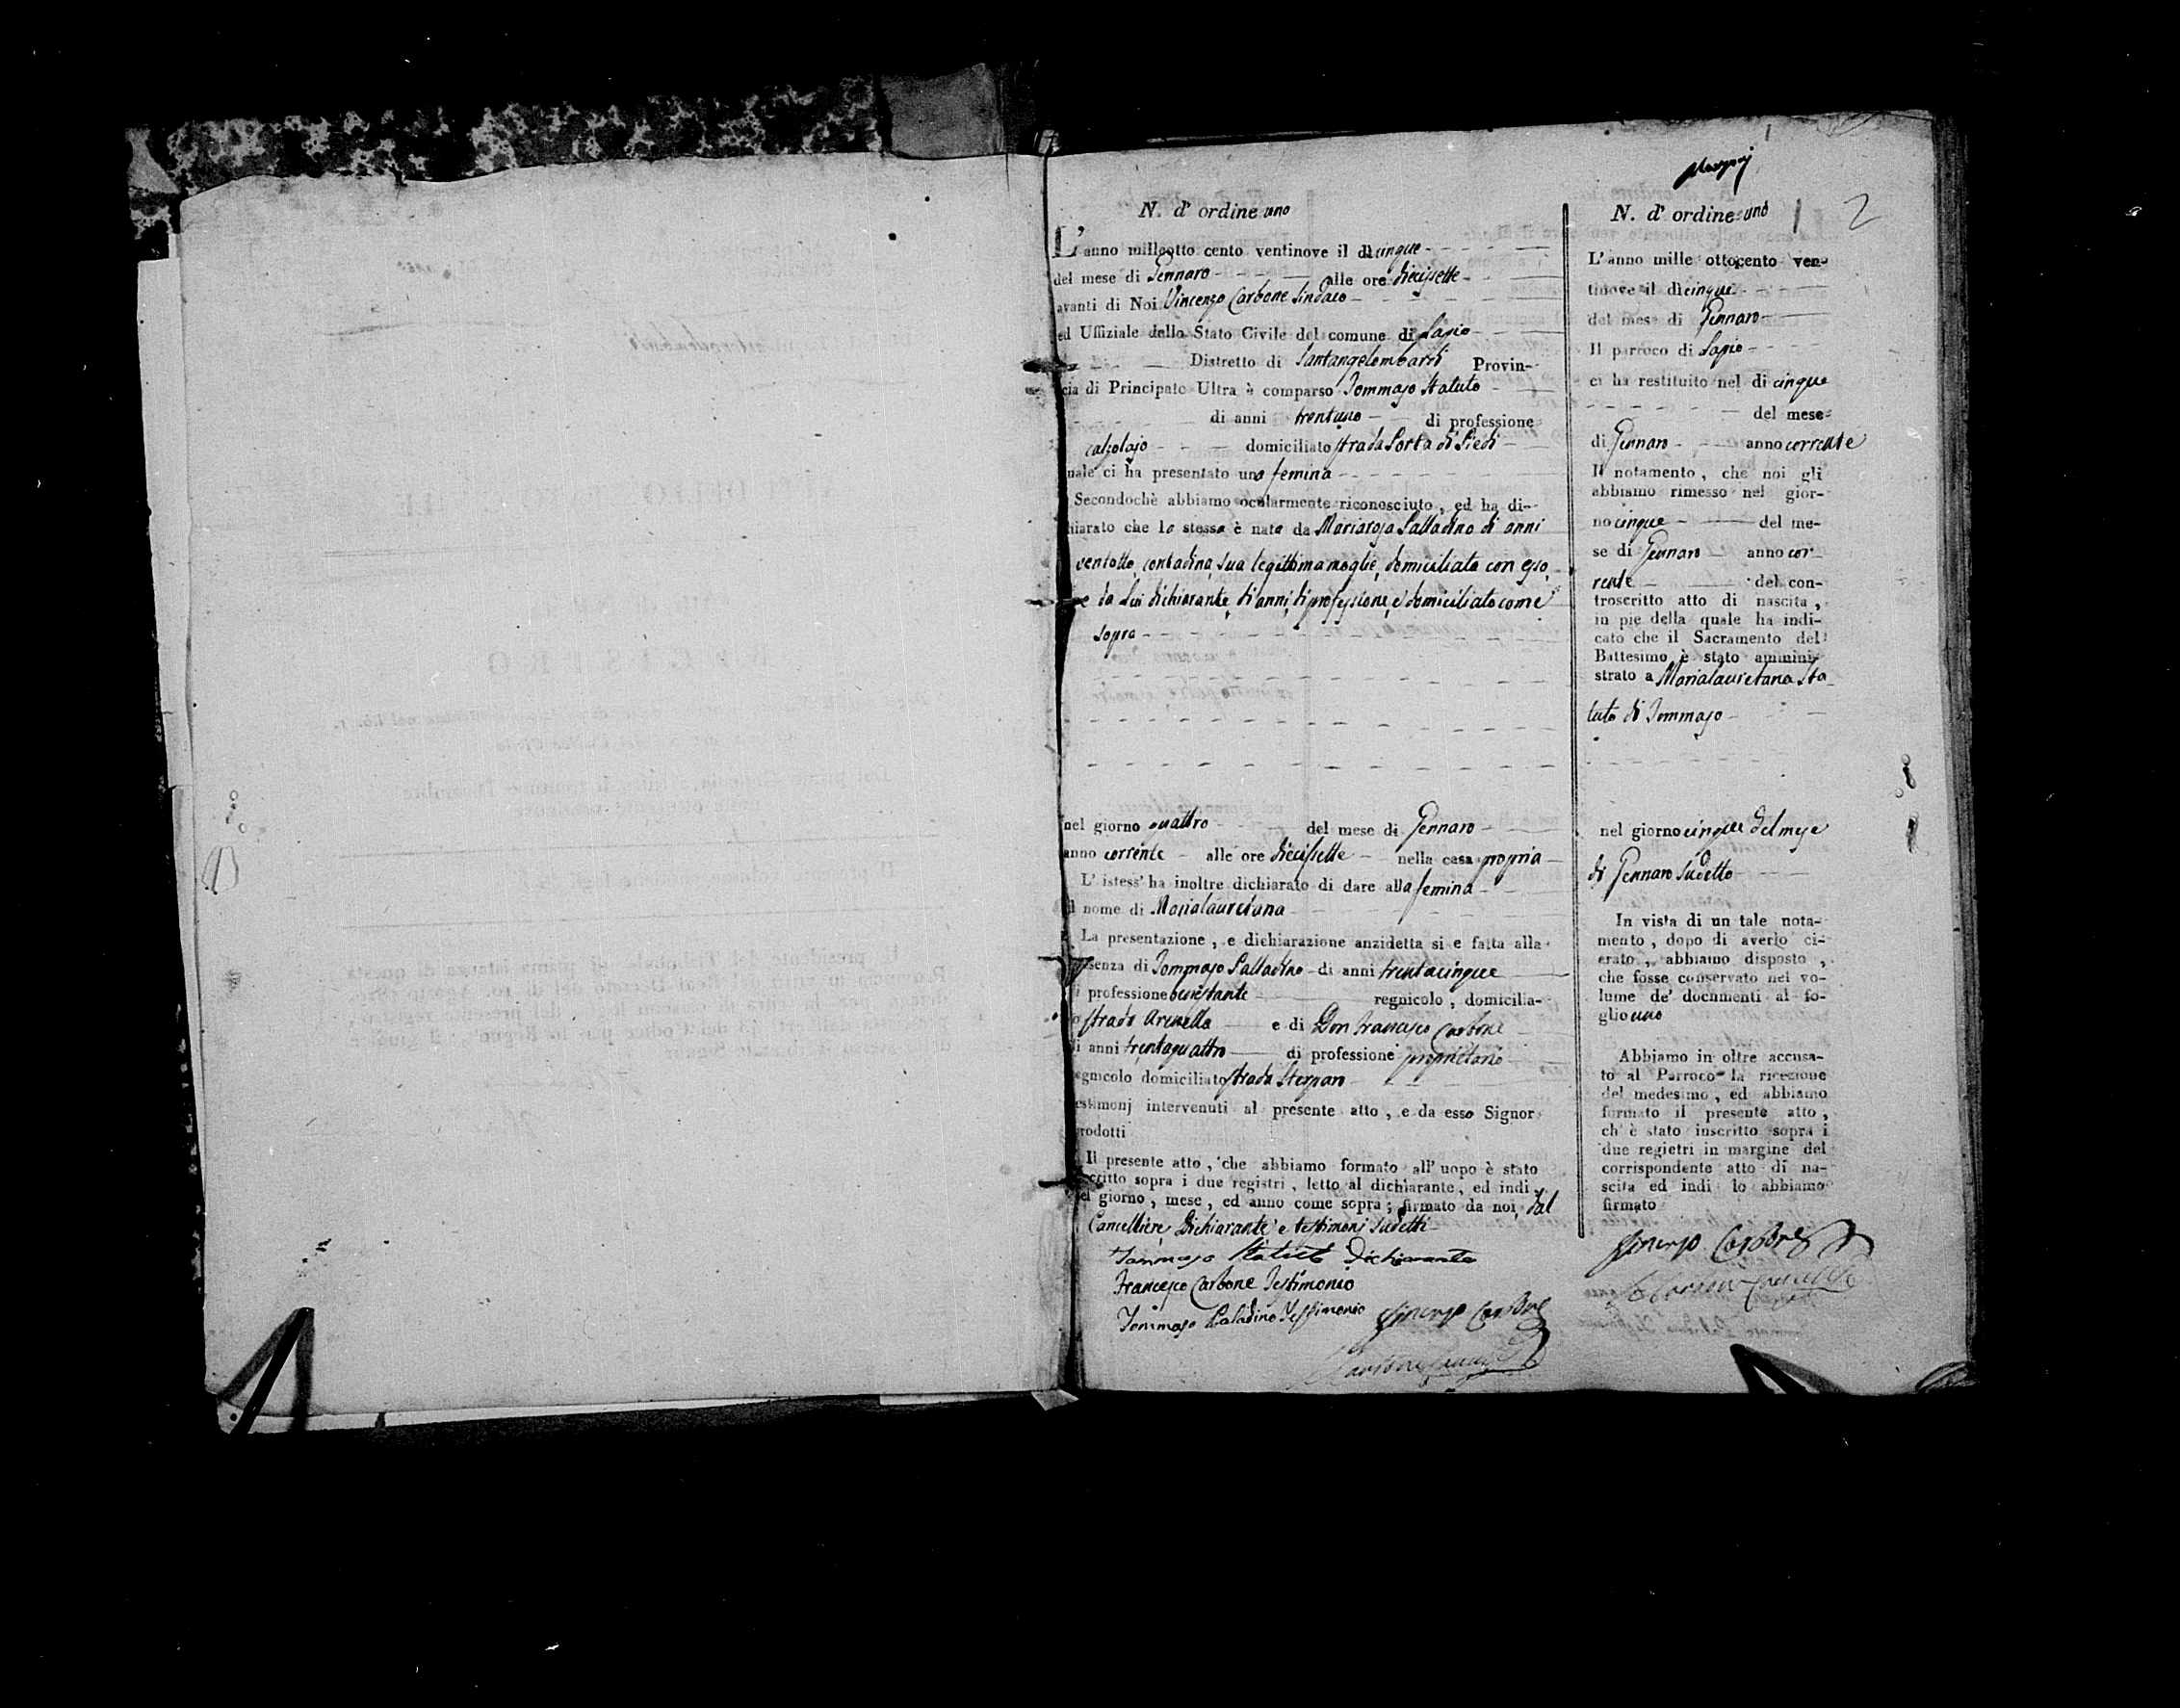 N. d' ordine uno
L'anno milleotto cento ventinove il dì cinque
del mese di Gennaro alle ore diecissette
avanti di Noi Vincenzo Carbone Sindaco
ed Uffiziale dello Stato Civile del comune di Lapio
Distretto di Santangelombardi Provin-
cia di Principato Ultra è comparso Tommaso Statuto
di anni trentuno di professione
calzolajo domiciliato strada Porta di Piedi
quale ci ha presentato una femina
Secondochè abbiamo ocularmente riconosciuto, ed ha di-
chiarato che la stessa è nata da Mariarosa Palladino di anni
ventotto, contadina, sua legittima moglie, domiciliata con esso,
e da Lui dichiarante, di anni, di professione, e domiciliato come
sopra
nel giorno quattro del mese di Gennaro
anno corrente alle ore diecissette nella casa propria
L' istess' ha inoltre dichiarato di dare alla femina
il nome di Marialauretana
La presentazione, e dichiarazione anzidetta si e fatta alla
presenza di Tommaso Palladino di anni trentacinque
di professione regnicolo, domicilia-
to strada Arenella e di Don Francesco Carbone
di anni trentaquattro di professione proprietario
regnicolo domiciliato strada
testimonj intervenuti al presente atto, e da esso Signor
prodotti
Il presente atto, che abbiamo formato all' uopo è stato
scritto sopra i due registri, letto al dichiarante, ed indi
nel giorno, mese, ed anno come sopra; firmato da noi, dal
Cancelliere, Dichiarante e testimoni sudetti
Tommaso Statuto Dichiarante
Francesco Carbone Testimonio
Tommaso Paladino Testimonio Vincenzo Carbone
Carbone
N. d' ordine uno 1 2
L'anno mille ottocento ven-
tinove il dì cinque
del mese di Gennaro
Il parroco di Lapio
ci ha restituito nel dì cinque
del mese
di Gennaro anno corrente
Il notamento, che noi gli
abbiamo rimesso nel gior-
no cinque del me-
se di Gennaro anno cor-
rente del con-
troscritto atto di nascita,
in piè della quale ha indi-
cato che il Sacramento del
Battesimo è stato ammini-
strato a Marialauretana Sta
tuto di Tommaso
nel giorno cinque del mese
di Gennaro sudetto
In vista di un tale nota-
mento, dopo di averlo ci-
frato, abbiamo disposto,
che fosse conservato nel vo-
lume de' documenti al fo-
glio uno
Abbiamo in oltre accusa-
to al Parroco la ricezione
del medesimo, ed abbiamo
formato il presente atto,
ch' è stato inscritto sopra i
due registri in margine del
corrispondente atto di na-
scita ed indi lo abbiamo
firmato
Vincenzo Carbone